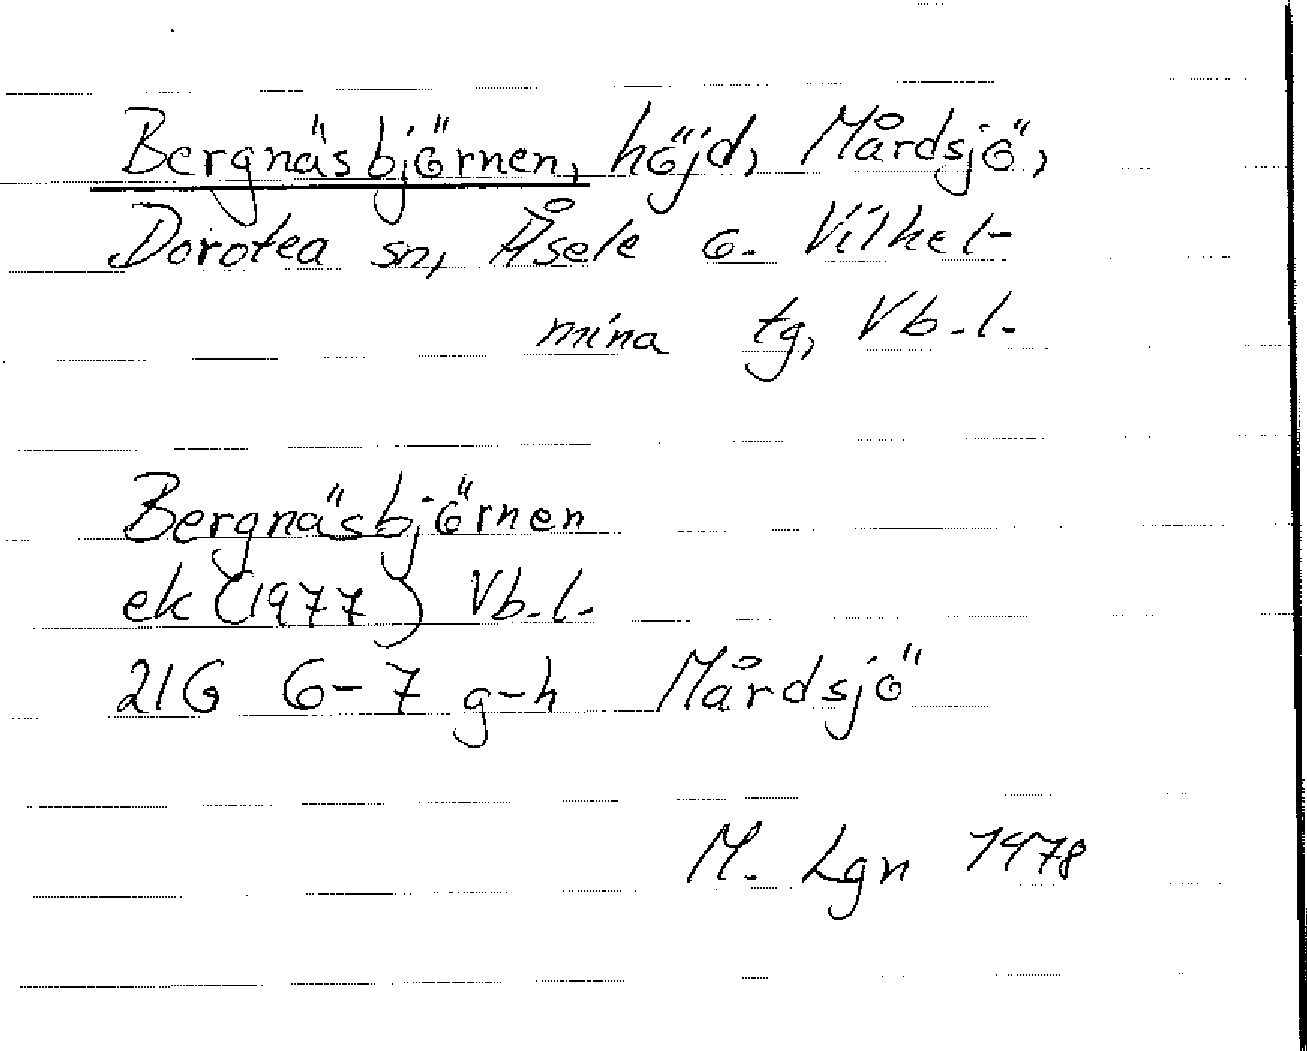 Bergnäsbjörnen, höjd, Mårdsjö,
Dorotea sn, Åsele o. Vilhel-
mina tg, Vb.l.
Bergnäsbjörnen
ek (1977) Vb.l.
21G 6-7 g-h Mårdsjö
M. Lgn 1978